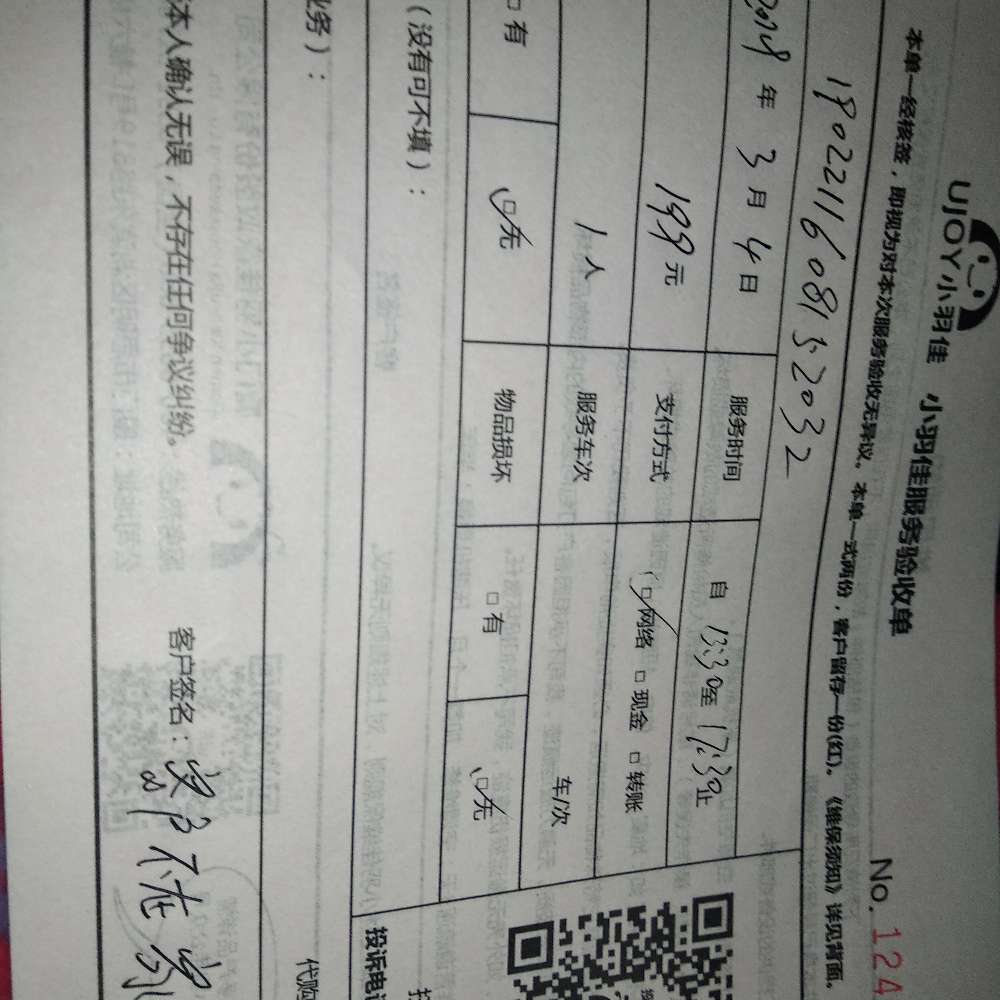 UJOY小羽佳 小羽佳服务验收单
No.124
本单一经核签，即视为对本次服务验收无异议。本单一式两份，客户留存一份(红)。《维保须知》详见背面。
1802211608152032
2018年3月4日 服务时间 自13:30至17:30止
199元 支付方式 □网络 □现金 □转账
1人 服务车次 车/次
□有 □无 物品损坏 □有 □无
（没有可不填）：
投诉电话
业务）：
代购
本人确认无误，不存在任何争议纠纷。 客户签名：客户不在家